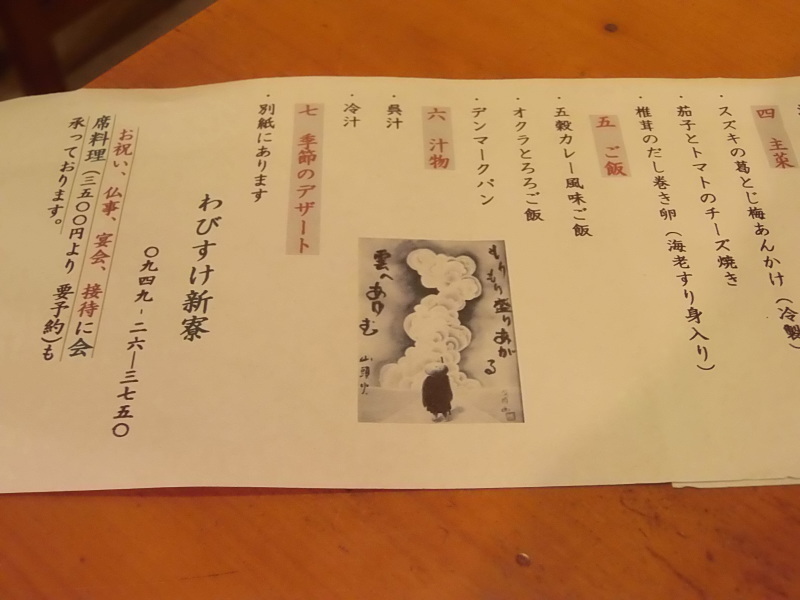 四 主菜
スズキの葛とじ梅あんかけ(冷製)
・茄子とトマトのチーズ焼き
・椎茸のだし巻き卵(海老すり身入り)
五 ご飯
・五穀カレー風味ご飯
・オクラとろろご飯
・デンマークパン
六 汁物
・呉汁
・冷汁
七 季節のデザート
・別紙にあります
もりもり盛りあがる
雲へあゆむ
山頭火
わびすけ新寮
〇九四九-二六―三七五〇
お祝い、仏事、宴会、接待に会
席料理(三五〇〇円より 要予約)も
承っております。